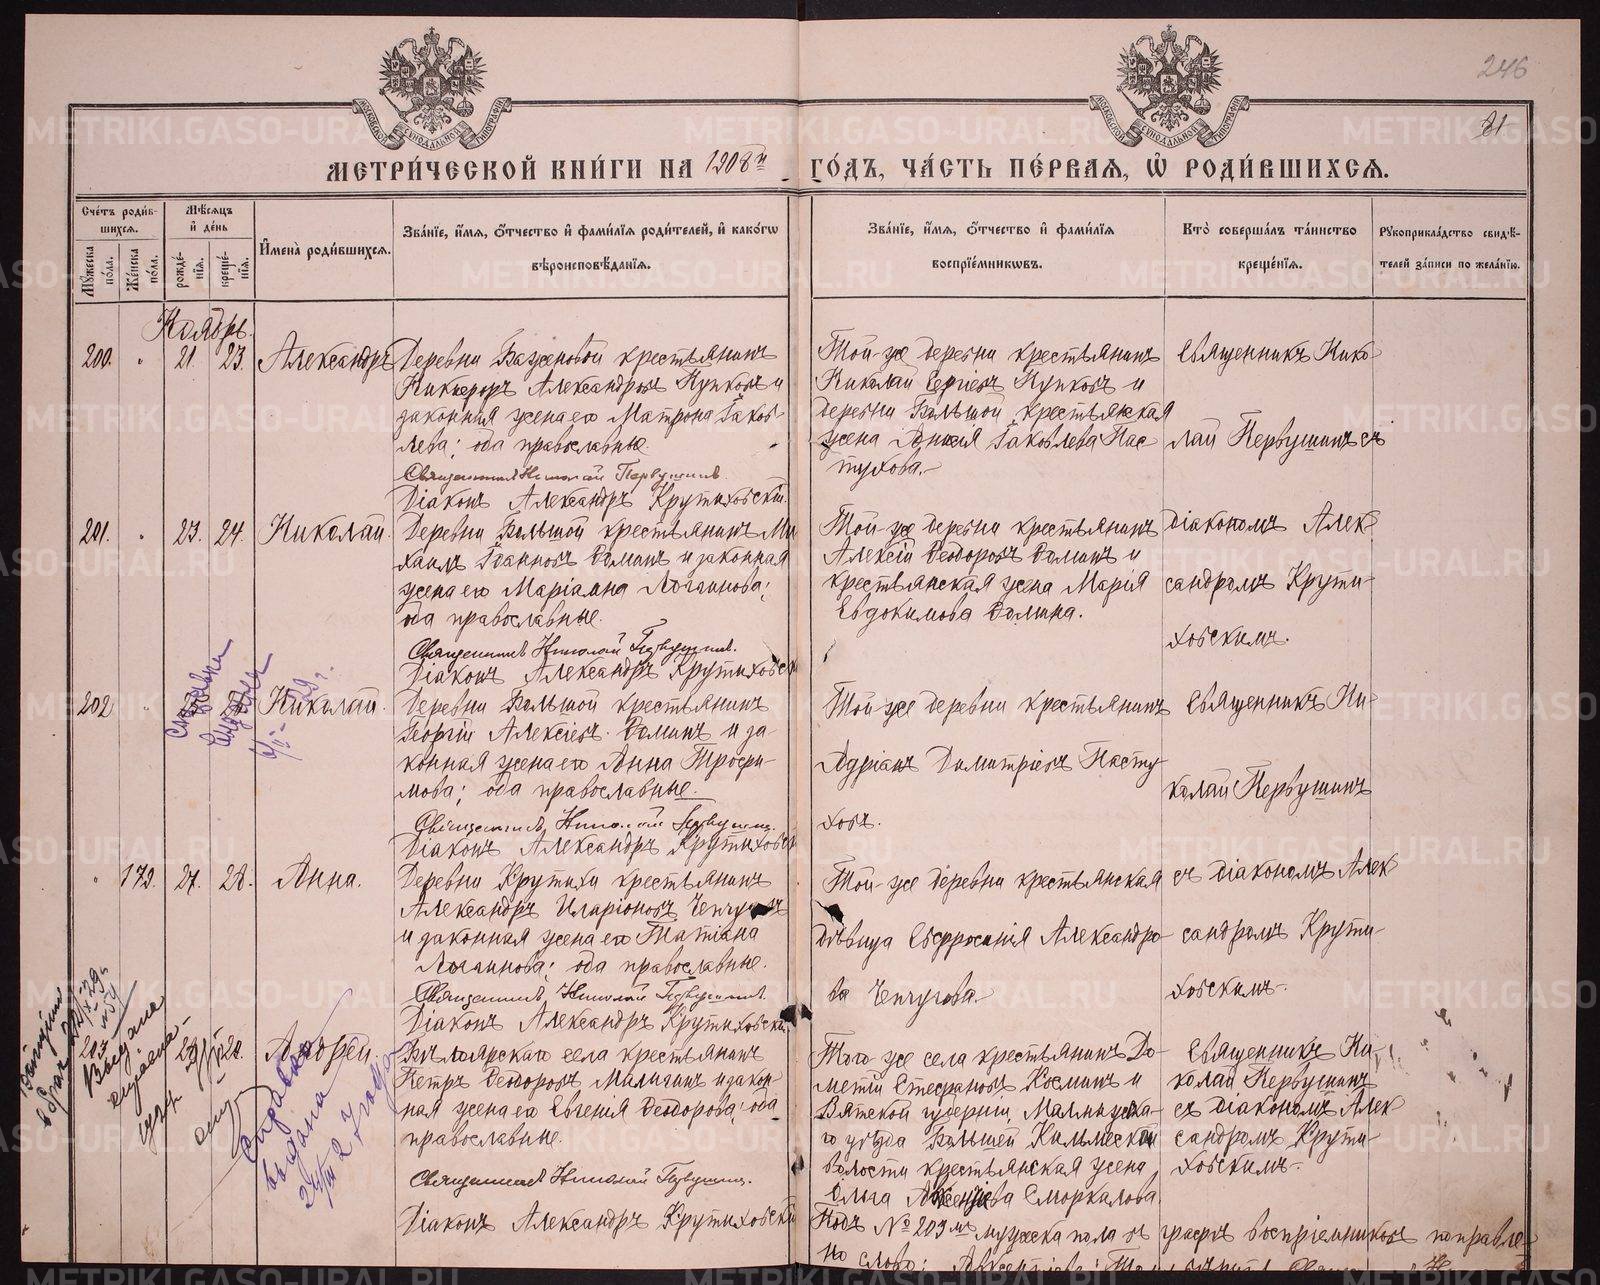 246
81
МЕТРИ́ЧЕСКОЙ КНИ́ГИ НА 1908й ГО́ДЪ, ЧА́СТЬ ПЕ́РВАЯ, Ѽ РОДИ́ВШИХСЯ.
Сче́тъ роди́вшихся.
Му́жеска пола.
Же́нска по́ла.
Мѣ́сяцъ и҆ де́нь
рожде́нїя.
креще́нїя.
И҆мена̀ роди́вшихся.
Зва́нїе, и҆́мя, ѻ҆́тчество и҆ фами́лїя роди́телей, и҆ како́гѡ вѣроисповѣ́данїя.
Зва́нїе, и҆́мя, ѻ҆́тчество и҆ фами́лїя воспрїе́мникѡвъ.
Кто̀ соверша́лъ та́инство креще́нїя.
Рꙋкоприкла́дство свидѣ́телей за́писи по жела́нїю.
Ноябрь.
200. " 21. 23. Александръ
Деревни Баженовой крестьянинъ
Никифоръ Александровъ Купковъ и
законная жена его Матрона Іаков-
лева; оба православные.
Священникъ Николай Первушинъ.
Діаконъ Александръ Крутиховскій.
Той-же деревни крестьянинъ
Николай Сергіевъ Купковъ и
деревни Большой крестьянская
жена Анна Іаковлева Пас-
тухова.
Священникъ Нико-
лай Первушинъ съ
201. " 23. 24. Николай.
Деревни Большой крестьянинъ Ми-
хаилъ Іоанновъ Доминъ и законная
жена его Маріамна Логгинова;
оба православные.
Священникъ Николай Первушинъ.
Діаконъ Александръ Крутиховскій
Той-же деревни крестьянинъ
Алексій Ѳеодоровъ Доминъ и
крестьянская жена Марія
Евдокимова Домина.
діакономъ Алек-
сандромъ Крути-
ховскимъ.
202 " Николай.
Деревни Большой крестьянинъ
Георгій Алексіевъ Доминъ и за-
конная жена его Анна Трофи-
мова; оба православные.
Священникъ Николай Первушинъ.
Діаконъ Александръ Крутиховскій
Той же деревни крестьянинъ
Адріанъ Димитріевъ Пасту-
ховъ.
Священникъ Ни-
колай Первушинъ
" 172. 27. 28. Анна.
Деревни Крутихи крестьянинъ
Александръ Иларіоновъ Чепчуговъ
и законная жена его Татіана
Логгинова; оба православные.
Священникъ Николай Первушинъ.
Діаконъ Александръ Крутиховскій
Той-же деревни крестьянская
дѣвица Евфросинія Александро-
ва Чепчугова.
съ діакономъ Алек-
сандромъ Крути-
ховскимъ.
203 28. Андрей.
Бѣлоярскаго села крестьянинъ
Петръ Ѳеодоровъ Малыгинъ и закон-
ная жена его Евгенія Ѳеодорова; оба
православные.
Священникъ Николай Первушинъ.
Діаконъ Александръ Крутиховскій
Того же села крестьянинъ До-
метій Стефановъ Косминъ и
Вятской губерніи, Малмыжска-
го уѣзда Большей Кильмеской
волости крестьянская жена
Ольга Авксентіева Сморкалова.
Священникъ Ни-
колай Первушинъ
съ діакономъ Алек-
сандромъ Крути-
ховскимъ.
Подъ № 203мъ мужеска пола въ графѣ воспріемниковъ поправле-
но слово:
Выдана
выдана
METRIKI.GASO-URAL.RU